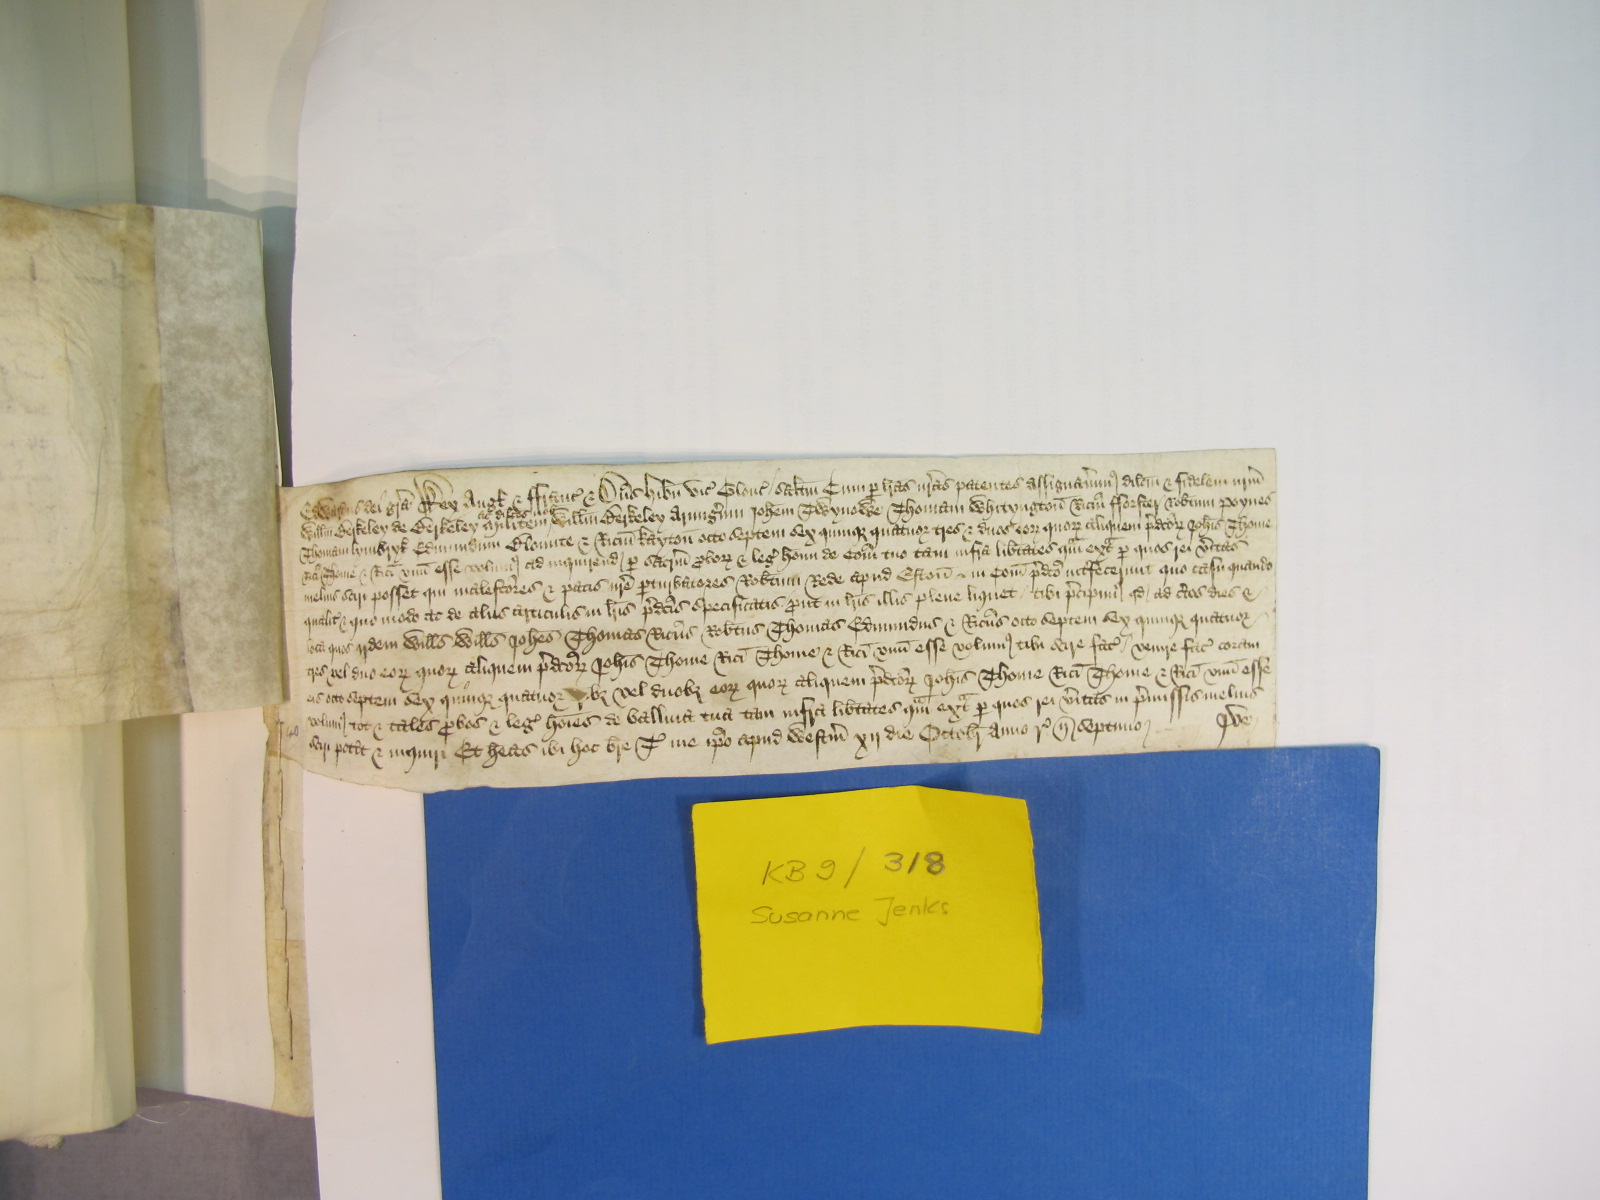 Edwardus dei gra Rex Angl & ffranc & Dns hibn vic Glouc saltm Cum p lras nras patentes assignavim9 dilcm & fidelem nrm
Willm Berkeley de Berkeley militem ac dilcos nob Willm Berkeley Armigerum Johem Twynowe Thomam Whityngton Ricm fforster Robtum Poynes
Thomam lymbryk Edmundum Blounte & Ricm kayton octo septem sex quinq quatuor tres & duos eor quor aliquem pdcor Johis Thome
Rici Thome & Rici vnu esse volum9 ad inquirend p sacrm pbor & leg hoim de Com tuo tam infra libtates qam exa p quos rei vitas
melius sciri posset qui malefcores & pacis nre pturbatores Robtum Rede apud Eston in Com pdco intfecerunt quo casu quando
qualit & quo modo ac de aliis articulis in lris pdcis specificatis put in lris illis plene liquet tibi pcipim9 qd ad ctos dies &
loca quos ijdem Wills Wills Johes Thomas Ricus Robtus Thomas Edmundus & Ricus octo septem sex quinq quatuor
tres vel duo eor quor aliquem pdcor Johis Thome Rici Thome & Rici vnu esse volum9 tibi scire fac venire fac coram
eis octo septem sex quinq quatuor bz vel duobz eor quor aliquem pdcor Johis Thome Rici Thome & Rici vnu esse
volum9 tot & tales pbos & leg hoies de balliua tua tam infra libtates qam exa p quos rei vitas in pmissis melius
sciri potit & inquiri Et heas ibi hoc bre T me ipo apud Westm xij die Octobr Anno r n septimo
KB 9 / 318
Susanne Jenks